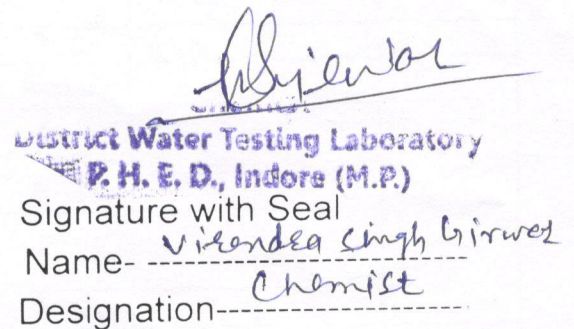 Chemist
District Water Testing Laboratory
P. H. E. D., Indore (M.P.)
Signature with Seal
Name- Virendra Singh Girwal
Designation- Chemist